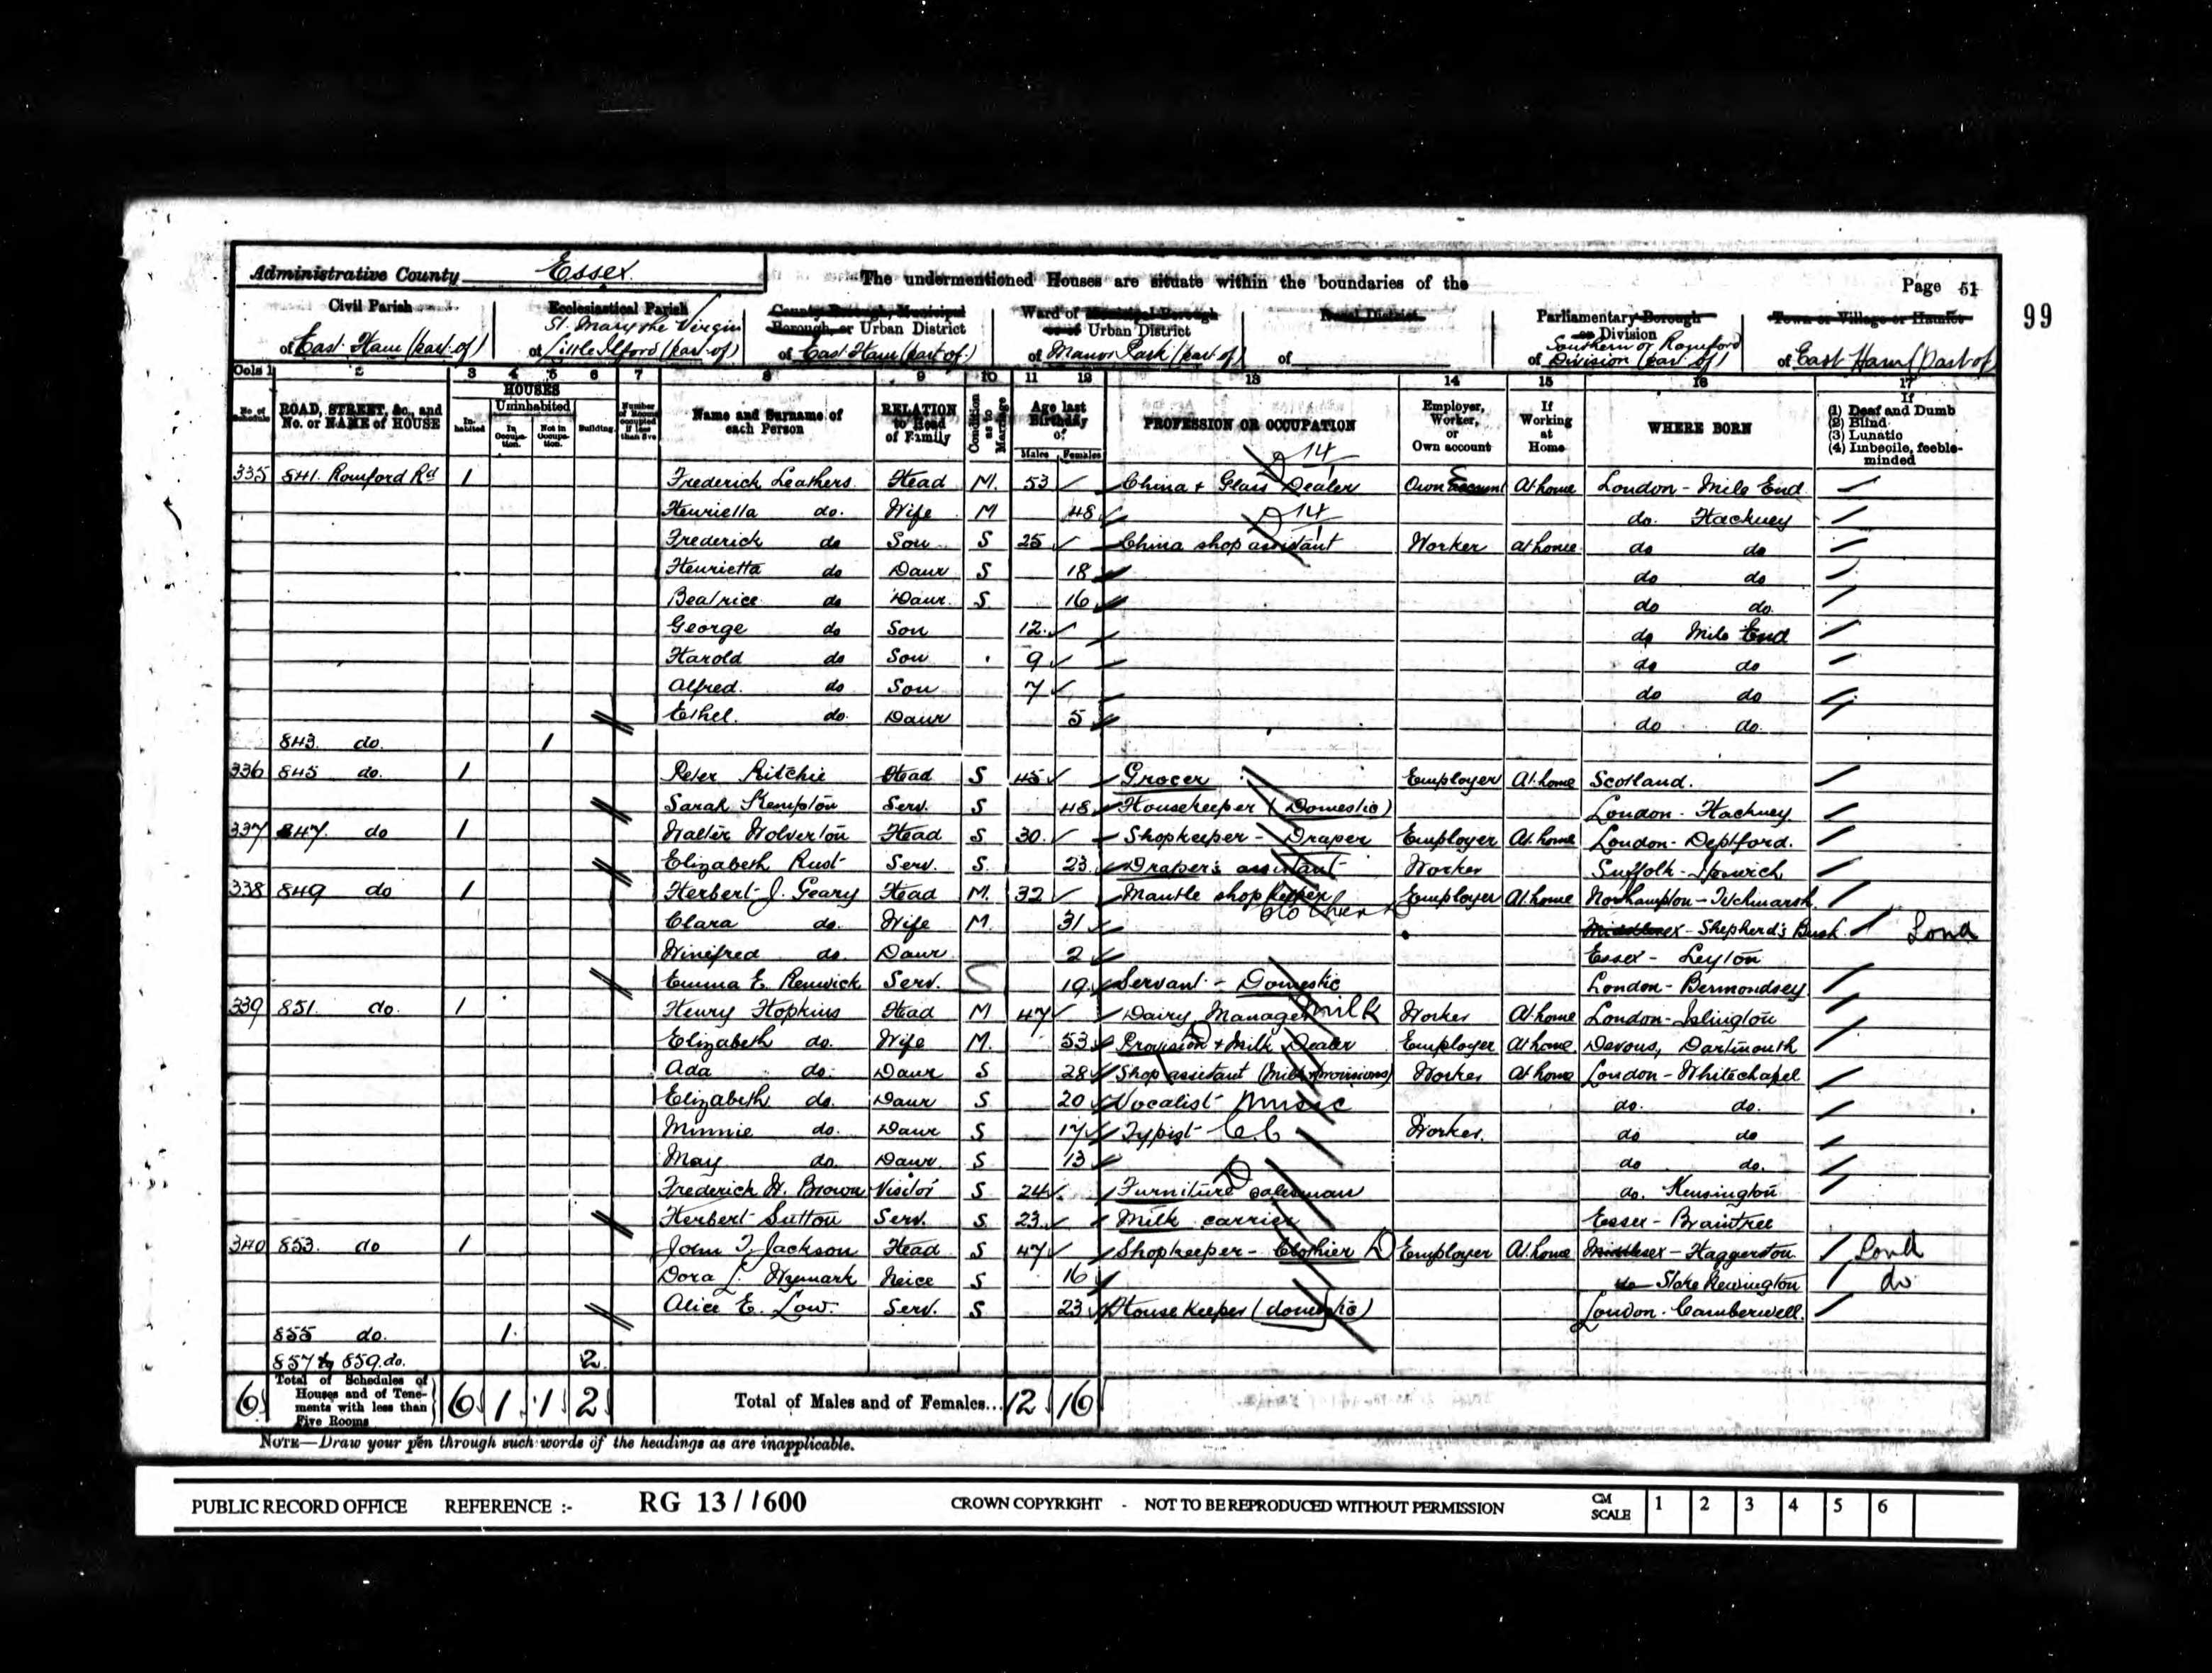 Administrative County Essex.
The undermentioned Houses are situate within the boundaries of the
Page 51
99
Civil Parish of East Ham (part of)
Ecclesiastical Parish of St. Mary the Virgin Little Ilford (part of)
County Borough, Municipal Borough, or Urban District of East Ham (part of)
Ward of Municipal Borough or of Urban District of Manor Park (part of)
Rural District of
Parliamentary Borough or Division of Southern or Romford Division (part of)
Town or Village or Hamlet of East Ham (Part of)
Cols 1 2 3 4 5 6 7 8 9 10 11 12 13 14 15 16 17
No. of Schedule
ROAD, STREET, &c., and No. or NAME of HOUSE
HOUSES
Inhabited
Uninhabited
In Occupation.
Not in Occupation.
Building.
Number of Rooms occupied if less than five
Name and Surname of each Person
RELATION to Head of Family
Condition as to Marriage
Age last Birthday of
Males Females
PROFESSION OR OCCUPATION
Employer, Worker, or Own account
If Working at Home
WHERE BORN
If (1) Deaf and Dumb (2) Blind (3) Lunatic (4) Imbecile, feeble-minded
D 14/1
335 841. Romford Rd 1 Frederick Leathers Head M. 53 China & Glass Dealer Own account At home London - Mile End
Henrietta do. Wife M 48 do. Hackney
D 14/1
Frederick do Son S 25 China shop assistant Worker at home do do
Henrietta do Daur S 18 do do
Beatrice do Daur. S 16 do do.
George do Son 12. do Mile End
Harold do Son 9 do do
Alfred. do Son 7 do do
Ethel. do. Daur 5 do do.
843. do. 1
336 845 do. 1 Peter Ritchie Head S 45 Grocer Employer At home Scotland.
Sarah Kempton Serv. S 48 Housekeeper (Domestic) London - Hackney
337 847. do 1 Walter Wolverton Head S 30. Shopkeeper - Draper Employer At home London - Deptford.
Elizabeth Rust Serv. S. 23 Draper's assistant Worker Suffolk - Ipswich
338 849 do 1 Herbert J. Geary Head M. 32 Mantle shop keeper Employer At home Northampton - Titchmarsh.
Clothier
Clara do. Wife M. 31 Middlesex - Shepherd's Bush. Lond
Winifred do. Daur 2 Essex - Leyton
Emma E. Renwick Serv. S 19 Servant - Domestic London - Bermondsey
339 851. do. 1 Henry Hopkins Head M 47 Dairy Manager Milk Worker At home London - Islington
Elizabeth do. Wife M. 53 Provision & Milk Dealer Employer At home. Devons, Dartmouth
D
Ada do. Daur S 28 Shop assistant (milk & provisions) Worker At home London - Whitechapel
Elizabeth do. Daur S 20 Vocalist Music do. do.
Minnie do. Daur S 17 Typist C.C Worker. do do
May do. Daur. S 13 do do.
Frederick W. Brown Visitor S 24 Furniture salesman do. Kensington
D
Herbert Sutton Serv. S 23 Milk carrier Essex - Braintree
340 853. do 1 John T. Jackson Head S 47 Shopkeeper - Clothier D Employer At home Middlesex - Haggerston Lond
Dora L. Wymark Neice S 16 do Stoke Newington do
Alice E. Low. Serv. S 23 House keeper (domestic) London. Camberwell.
855 do. 1.
857 to 859. do. 2
6 Total of Schedules of Houses and of Tenements with less than Five Rooms 6 1 1 2 Total of Males and of Females... 12 16
NOTE—Draw your pen through such words of the headings as are inapplicable.
PUBLIC RECORD OFFICE REFERENCE :- RG 13 / 1600 CROWN COPYRIGHT - NOT TO BE REPRODUCED WITHOUT PERMISSION CM SCALE 1 2 3 4 5 6